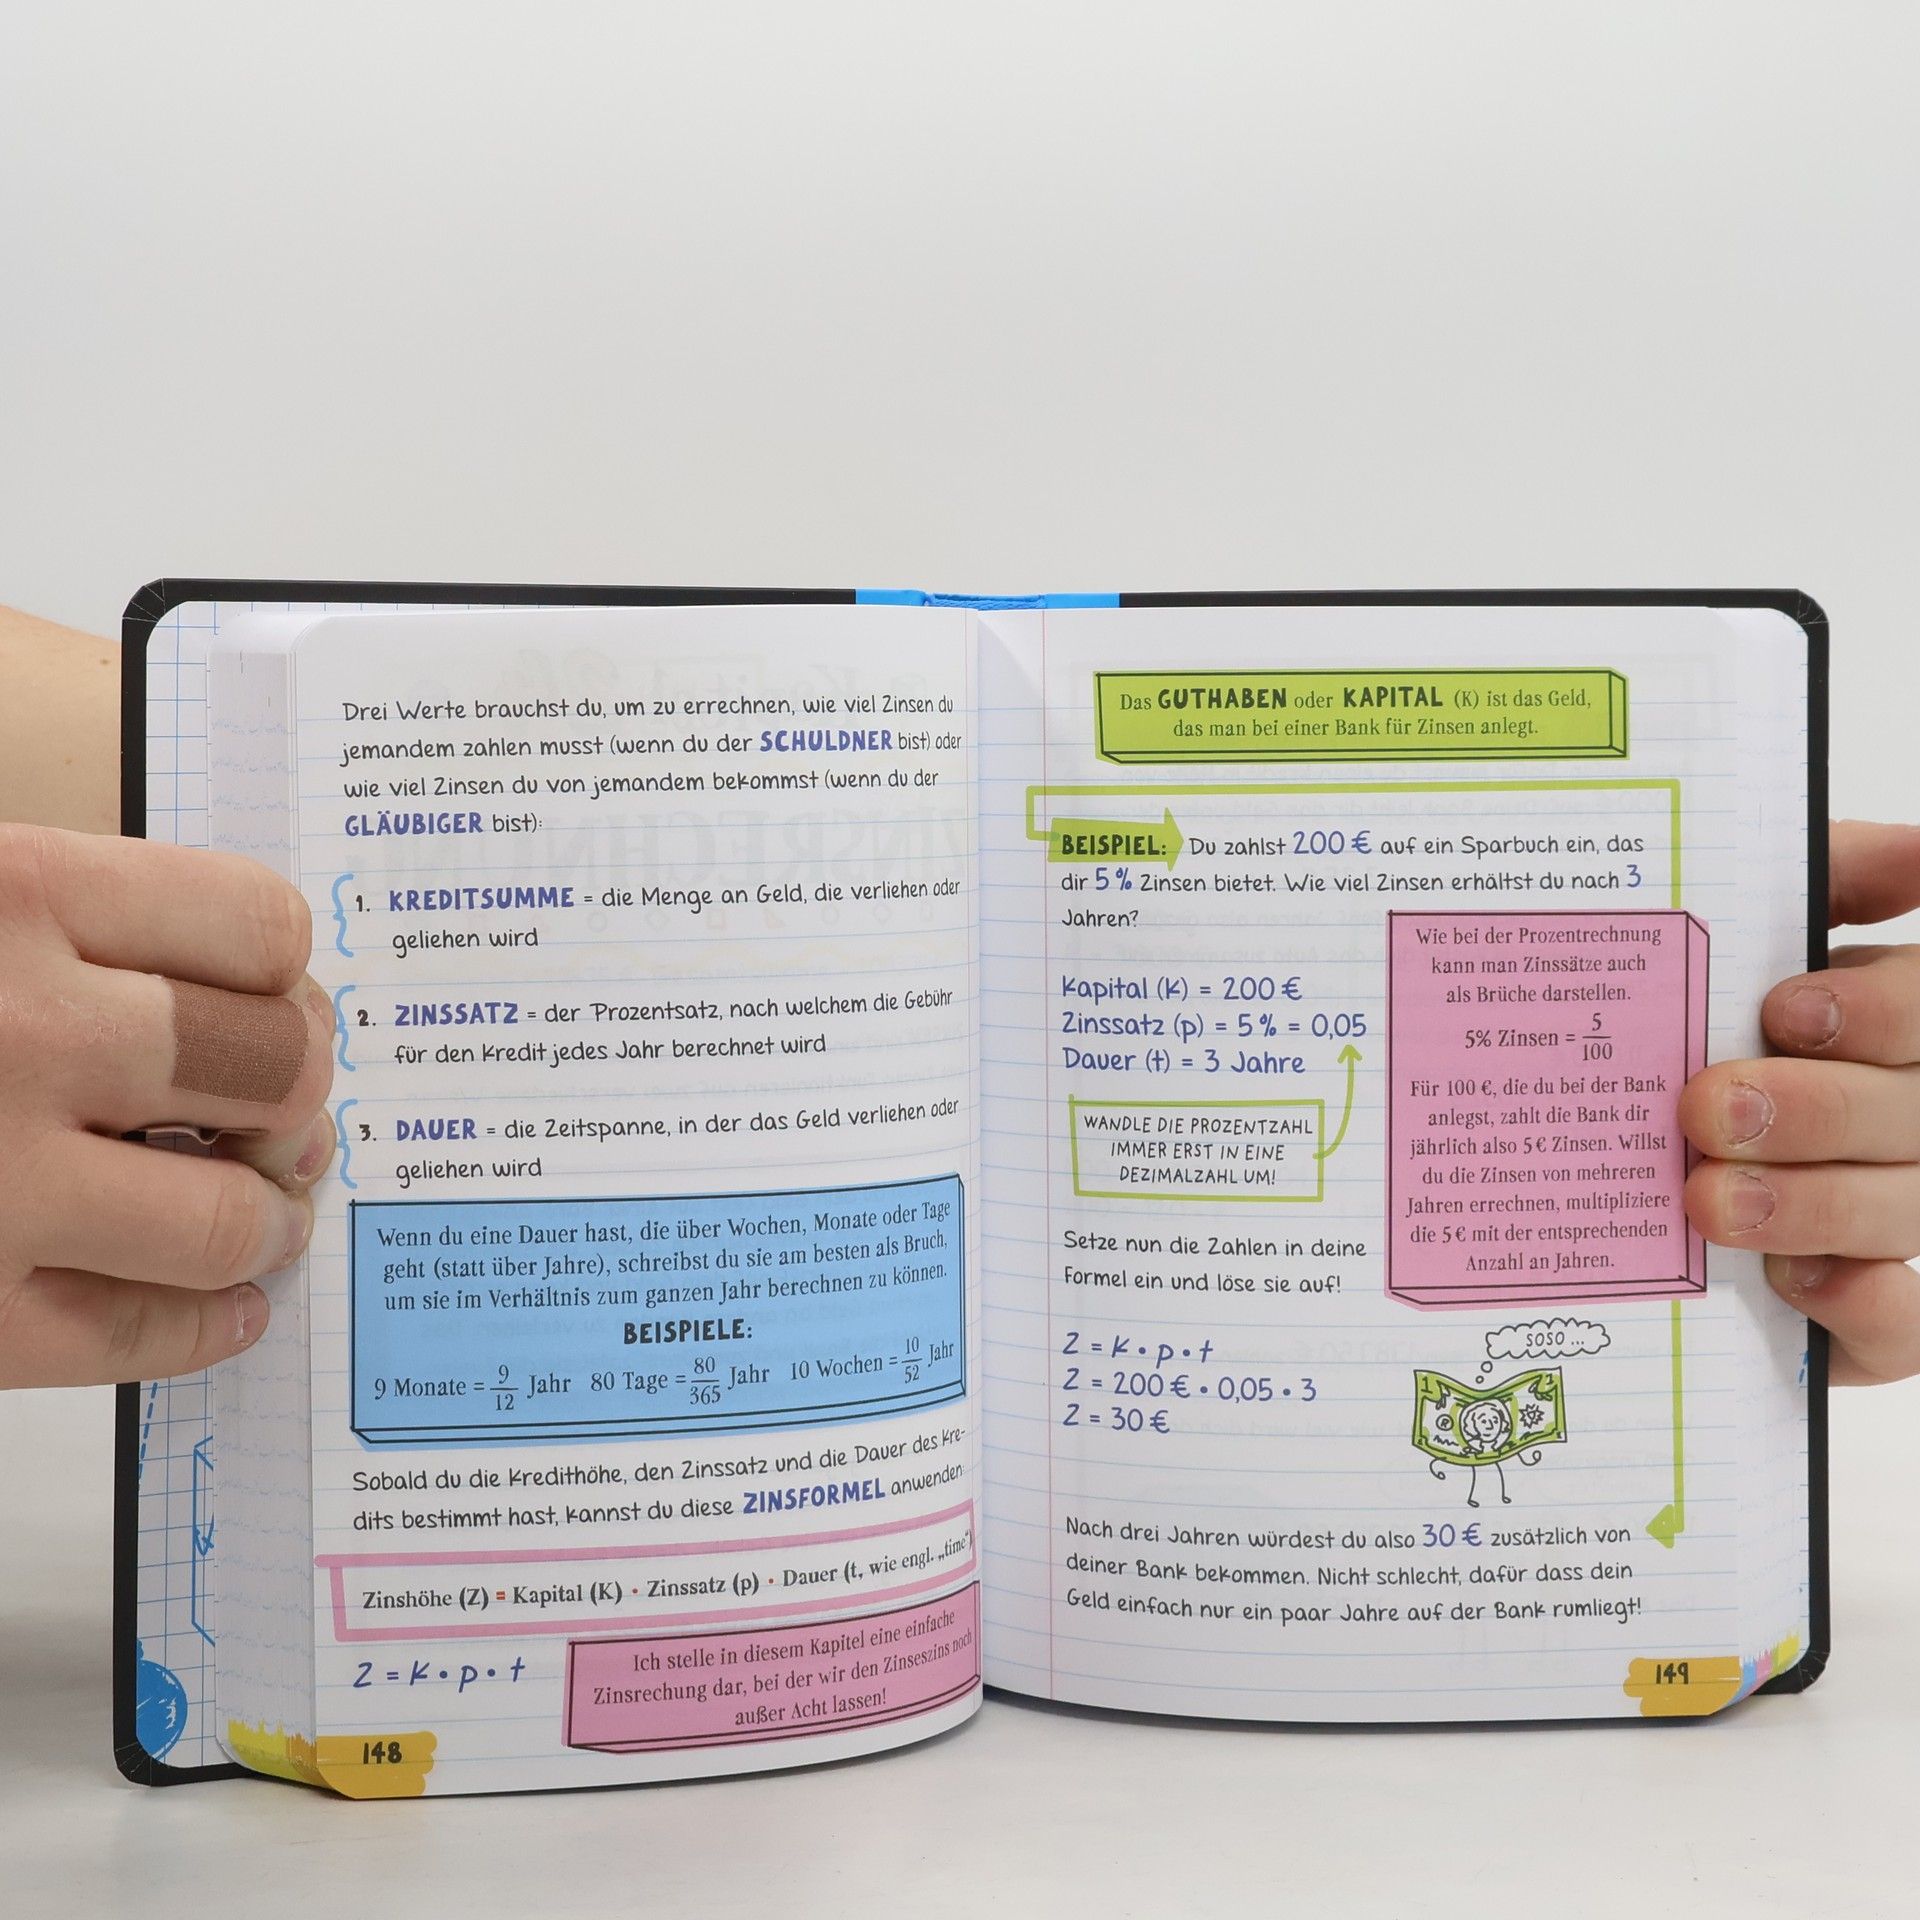 Drei Werte brauchst du, um zu errechnen, wie viel Zinsen du
jemandem zahlen musst (wenn du der SCHULDNER bist) oder
wie viel Zinsen du von jemandem bekommst (wenn du der
GLÄUBIGER bist):
1. KREDITSUMME = die Menge an Geld, die verliehen oder
geliehen wird
2. ZINSSATZ = der Prozentsatz, nach welchem die Gebühr
für den Kredit jedes Jahr berechnet wird
3. DAUER = die Zeitspanne, in der das Geld verliehen oder
geliehen wird
Wenn du eine Dauer hast, die über Wochen, Monate oder Tage
geht (statt über Jahre), schreibst du sie am besten als Bruch,
um sie im Verhältnis zum ganzen Jahr berechnen zu können.
BEISPIELE:
9 Monate = 9/12 Jahr 80 Tage = 80/365 Jahr 10 Wochen = 10/52 Jahr
Sobald du die Kredithöhe, den Zinssatz und die Dauer des Kre-
dits bestimmt hast, kannst du diese ZINSFORMEL anwenden:
Zinshöhe (Z) = Kapital (K) · Zinssatz (p) · Dauer (t, wie engl. „time“)
Z = K • p • t
Ich stelle in diesem Kapitel eine einfache
Zinsrechung dar, bei der wir den Zinseszins noch
außer Acht lassen!
148
Das GUTHABEN oder KAPITAL (K) ist das Geld,
das man bei einer Bank für Zinsen anlegt.
BEISPIEL: Du zahlst 200 € auf ein Sparbuch ein, das
dir 5 % Zinsen bietet. Wie viel Zinsen erhältst du nach 3
Jahren?
Kapital (K) = 200 €
Zinssatz (p) = 5 % = 0,05
Dauer (t) = 3 Jahre
WANDLE DIE PROZENTZAHL
IMMER ERST IN EINE
DEZIMALZAHL UM!
Wie bei der Prozentrechnung
kann man Zinssätze auch
als Brüche darstellen.
5% Zinsen = 5/100
Für 100 €, die du bei der Bank
anlegst, zahlt die Bank dir
jährlich also 5 € Zinsen. Willst
du die Zinsen von mehreren
Jahren errechnen, multipliziere
die 5 € mit der entsprechenden
Anzahl an Jahren.
Setze nun die Zahlen in deine
Formel ein und löse sie auf!
Z = K • p • t
Z = 200 € • 0,05 • 3
Z = 30 €
SOSO ...
1
Nach drei Jahren würdest du also 30 € zusätzlich von
deiner Bank bekommen. Nicht schlecht, dafür dass dein
Geld einfach nur ein paar Jahre auf der Bank rumliegt!
149